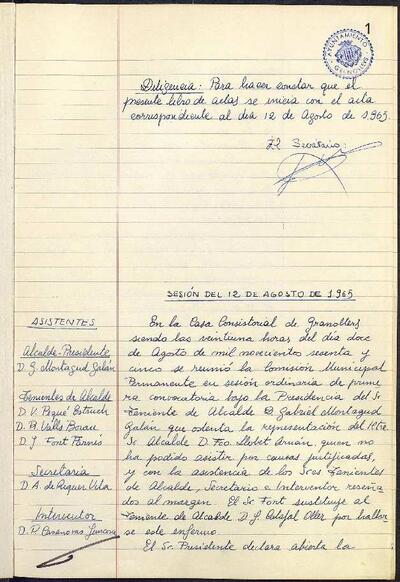 1
AYUNTAMIENTO
Diligencia: Para hacer constar que el
presente libro de actas se inicia con el acta
correspondiente al día 12 de Agosto de 1.965
El Secretario:
SESIÓN DEL 12 DE AGOSTO DE 1965
ASISTENTES
Alcalde-Presidente
D. G. Montagud Galán
Tenientes de Alcalde
D. V. Pagué Estruch
D. Valls
D. J. Font Parnés
Secretaria
D. A. de Riquer Vila
Interventor
D. P. Casanovas
En la Casa Consistorial de Granollers
siendo las veintiuna horas del día doce
de Agosto de mil novecientos sesenta y
cinco se reunió la Comisión Municipal
Permanente en sesión ordinaria de prime
ra convocatoria bajo la Presidencia del Sr
Teniente de Alcalde D. Gabriel Montagud
Galán que ostenta la representación del
Sr Alcalde D. Fco. Llobet Arnán, quien no
ha podido asistir por causas justificadas,
y con la asistencia de los Sres Tenientes
de Alcalde, Secretario e Interventor reseña
dos al margen. El Sr. Font sustituye al
Teniente de Alcalde D. J. Oller por hallar
se este enfermo.
El Sr. Presidente declara abierta la